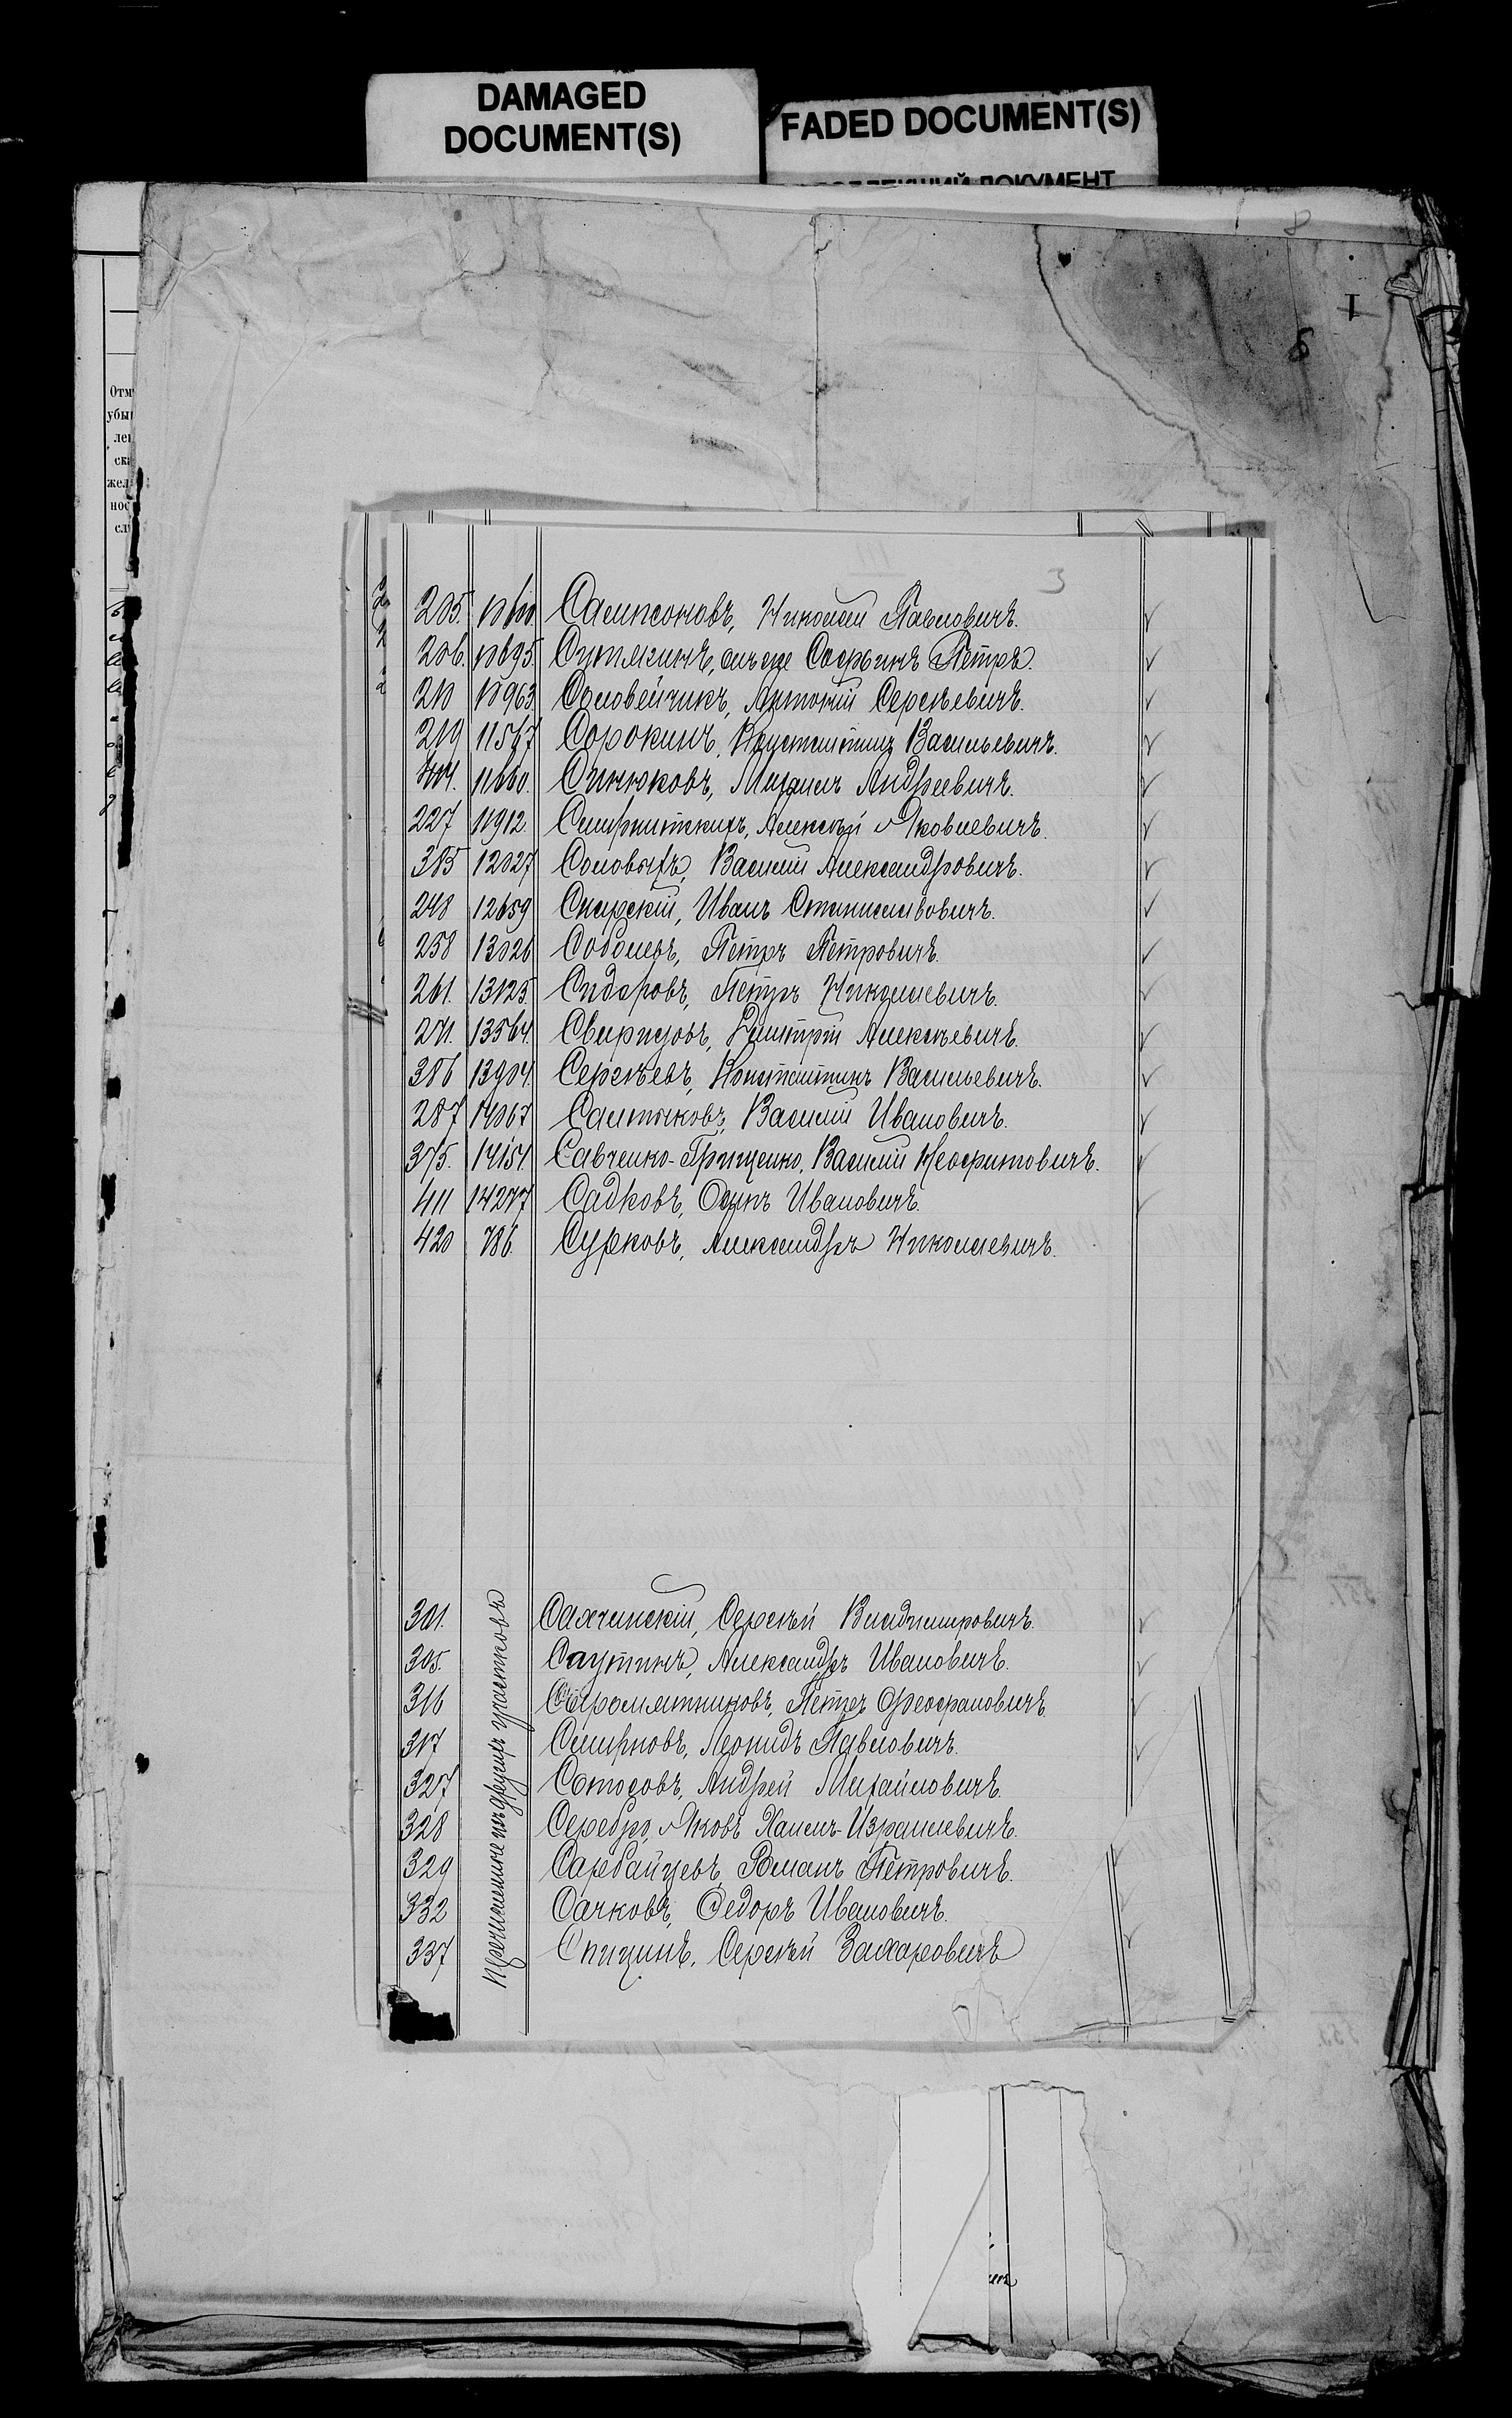 DAMAGED
DOCUMENT(S)
FADED DOCUMENT(S)
ДОКУМЕНТ
8
I
8
Отм
убы
лен
ска
жел
нос
сл
3
205. Сампсоновъ, Николай Павловичъ.
206. 10695. Сутягинъ, онъ же Софьинъ Петръ.
210 10963 Соловейчикъ, Антоній Сергѣевичъ.
219 11567 Сорокинъ, Константинъ Васильевичъ.
11660. Синюковъ, Михаилъ Андреевичъ.
227 11912 Смирнитскихъ, Алексѣй Яковлевичъ.
385 12027 Соловыхъ, Василій Александровичъ.
248 12659 Снарскій, Иванъ Станиславовичъ.
258 13026 Соболевъ, Петръ Петровичъ.
261. 13125. Сидоровъ, Петръ Николаевичъ.
271. 13564. Свиридовъ, Дмитрій Алексѣевичъ.
386 13904. Сергѣевъ, Константинъ Васильевичъ.
287 14067 Салтыковъ, Василій Ивановичъ.
375. 14154. Савченко-Грищенко, Василій Неофитовичъ.
411 14277 Садковъ, Осипъ Ивановичъ.
420 786. Сурковъ, Александръ Николаевичъ.
перечисленные изъ другихъ участковъ
301. Сахчинскій, Сергѣй Владимировичъ.
305. Саутинъ, Александръ Ивановичъ.
316 Стромятниковъ, Петръ Феофановичъ.
317 Смирновъ, Леонидъ Павловичъ.
327 Сотосовъ, Андрей Михайловичъ.
328 Серебро, Яковъ Хаимъ-Израилевичъ.
329 Сарбайцевъ, Романъ Петровичъ.
332 Сачковъ, Федоръ Ивановичъ.
337 Спицинъ, Сергѣй Захаровичъ